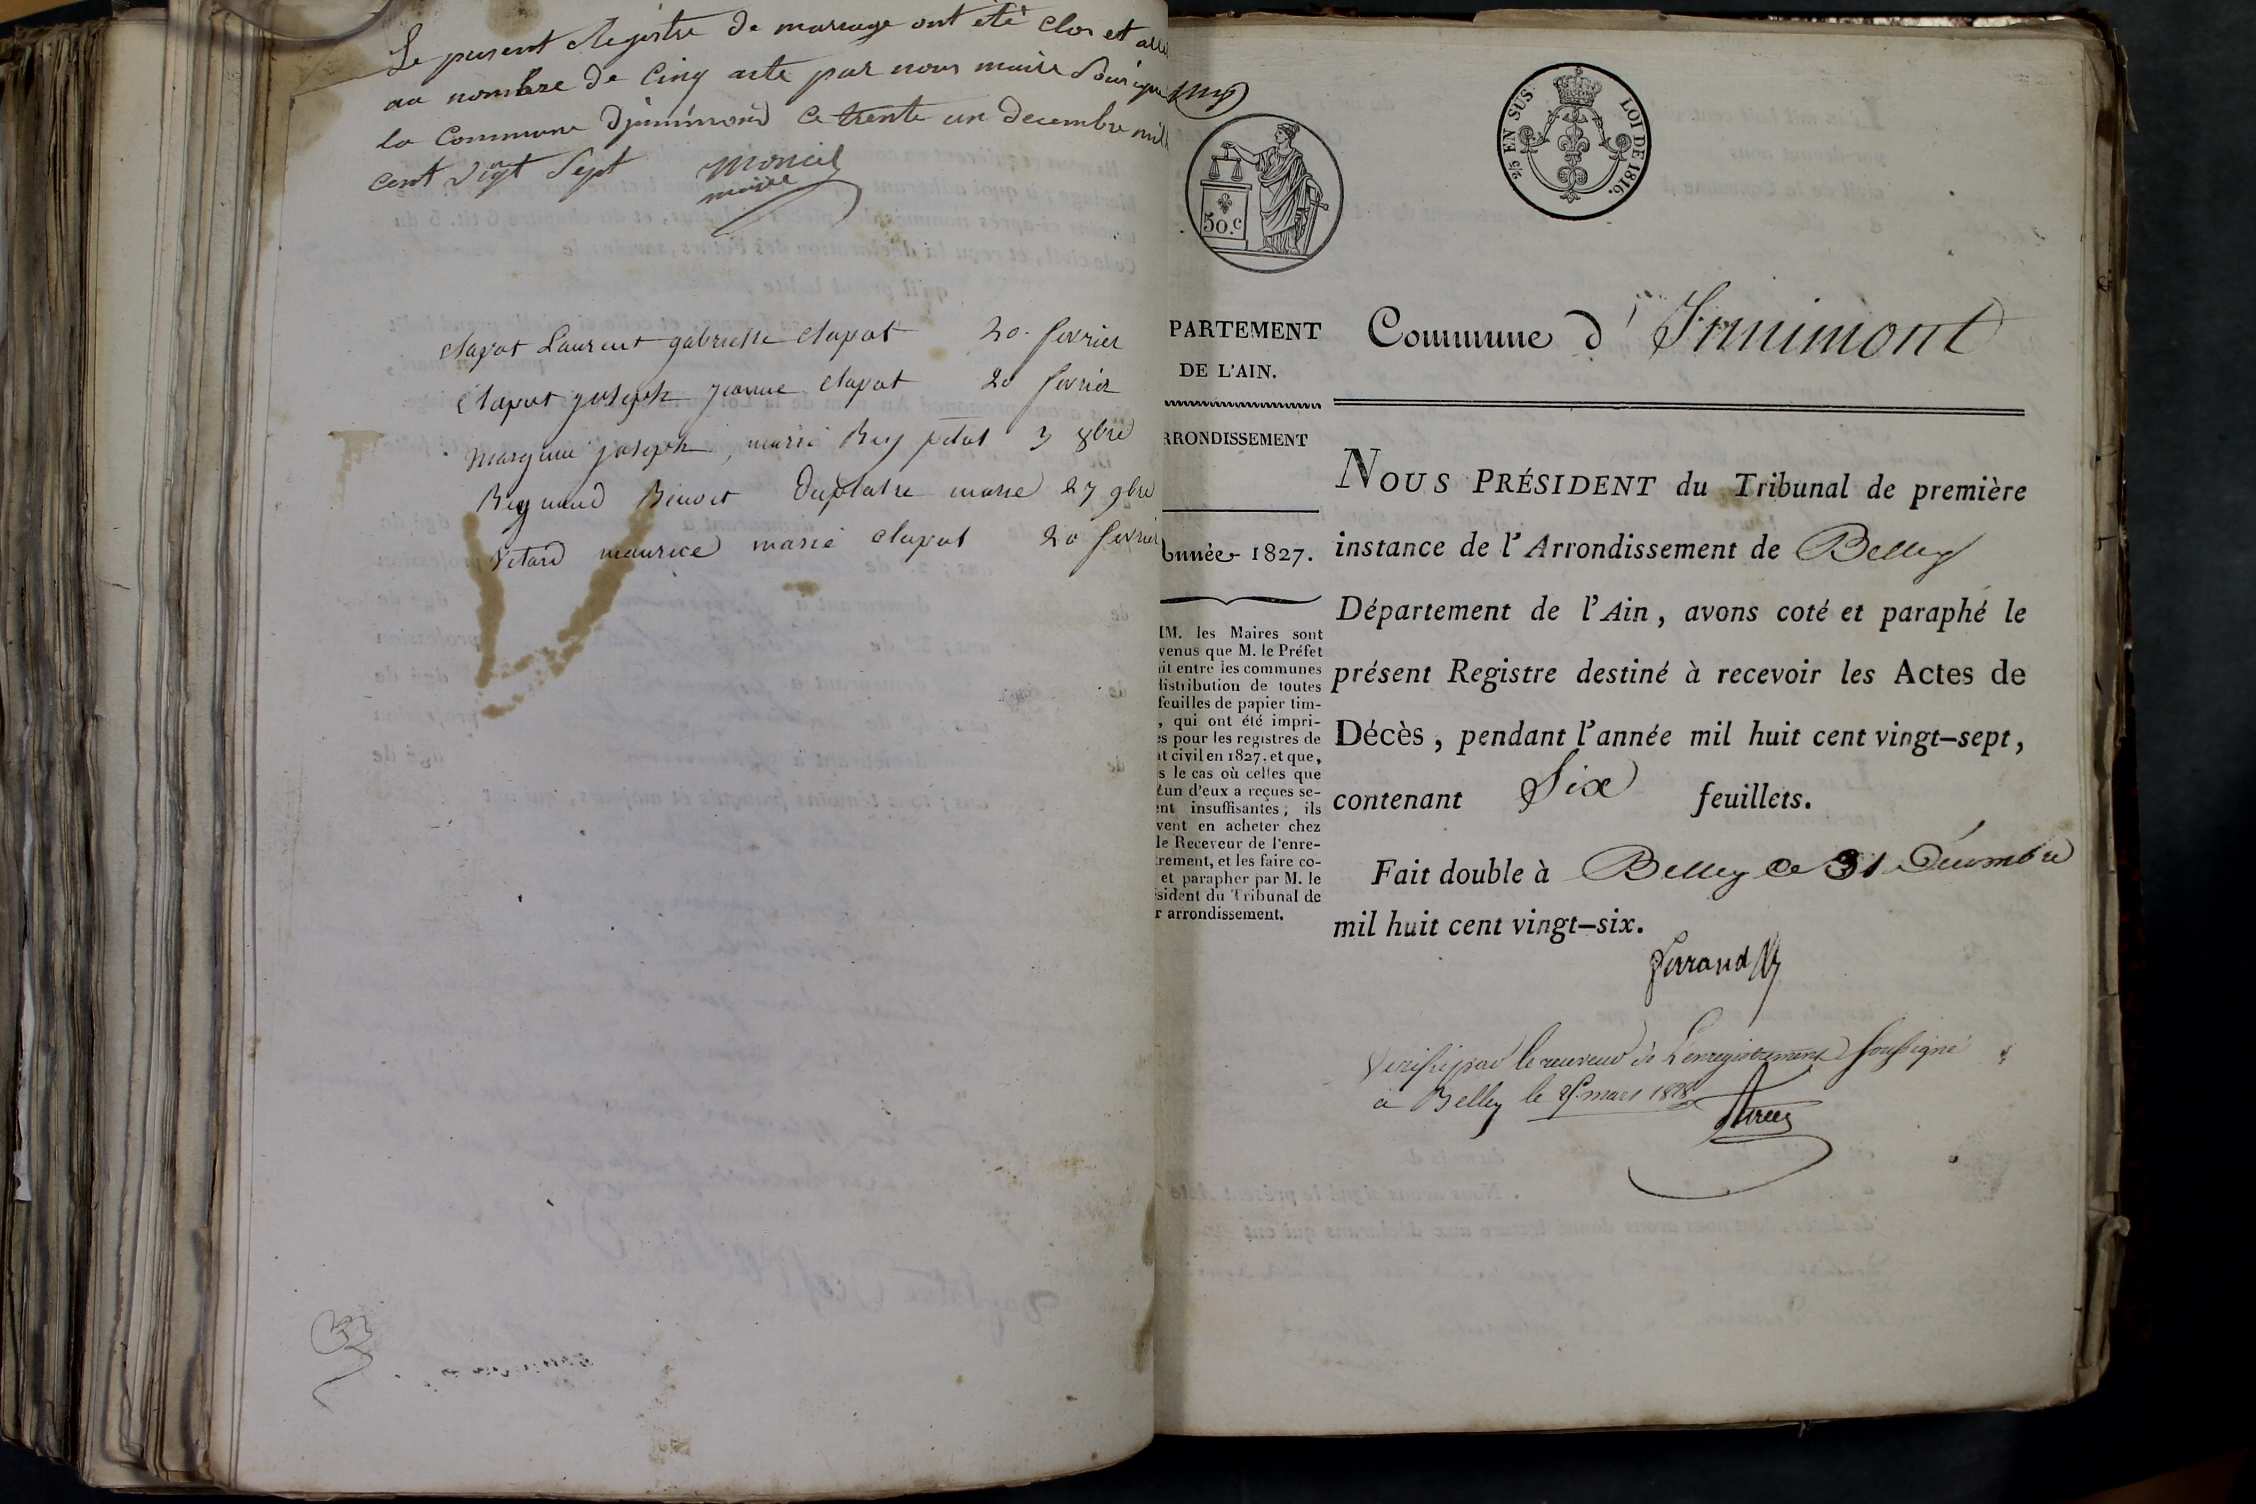 Le present Registre de mariage ont été clos et
au nombre de Cinq acte par nous maire
la Commune D'jnnimond ce trente un decembre mil
cent vigt Sept
monciel
maire
clapot Laurent gabrielle clapot 20 fevrier
clapot joseph jeanne clapot 20 fevrier
joseph, marie Rey 3 8bre
Reynaud Benoit Duplatre marie 27 9bre
Vétard maurice marie clapot 20 fevrier
2/5 EN SUS
LOI DE 1816.
50.c
PARTEMENT
DE L'AIN.
RRONDISSEMENT
nnée 1827.
M. les Maires sont
venus que M. le Préfet
it entre les communes
distribution de toutes
feuilles de papier tim-
, qui ont été impri-
es pour les registres de
t civil en 1827. et que,
s le cas où celles que
un d'eux a reçues se-
ent insuffisantes, ils
vent en acheter chez
le Receveur de l'enre-
trement, et les faire co-
et parapher par M. le
sident du Tribunal de
r arrondissement.
Commune d' Innimont
NOUS PRÉSIDENT du Tribunal de première
instance de l'Arrondissement de Belley
Département de l'Ain, avons coté et paraphé le
présent Registre destiné à recevoir les Actes de
Décès, pendant l'année mil huit cent vingt-sept,
contenant Six feuillets.
Fait double à Belley ce 31 Décembre
mil huit cent vingt-six.
Ferrand
Verifié par le receveur de l'enregistrement soussigné
à Belley le mars 1828